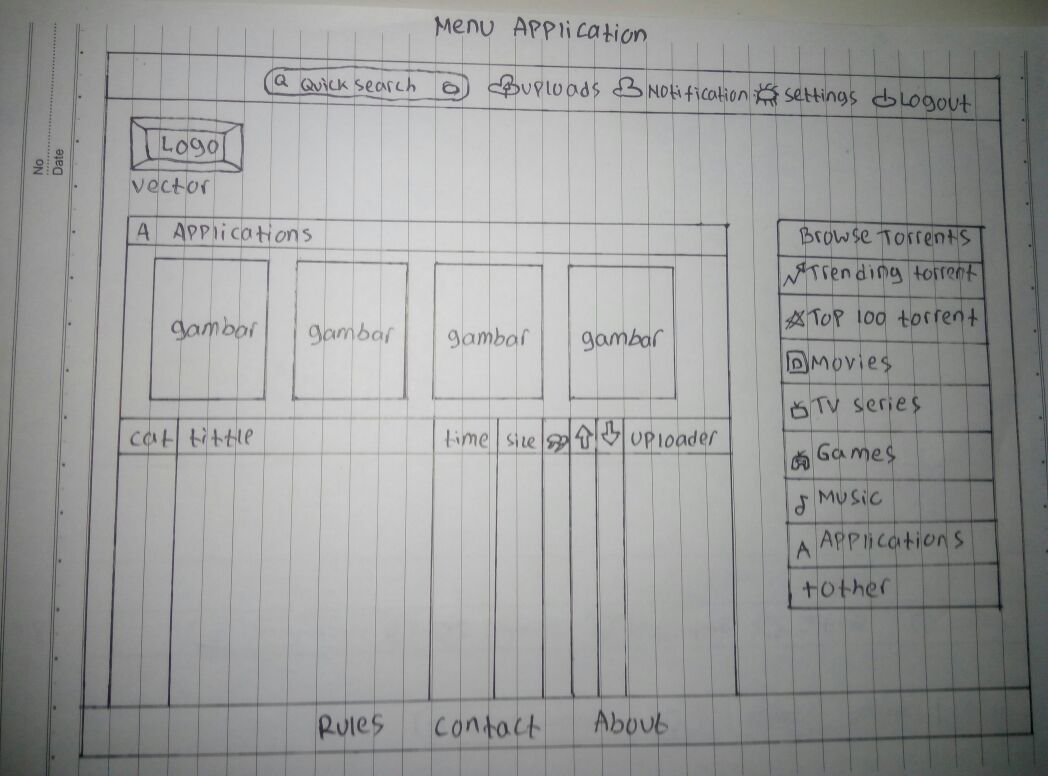 Menu Application
No
Date
Quick search Uploads Notification settings Logout
Logo
vector
A Applications
gambar gambar gambar gambar
cat tittle time size uploader
Browse Torrents
Trending torrent
Top 100 torrent
Movies
TV series
Games
Music
A Applications
+ Other
Rules contact About